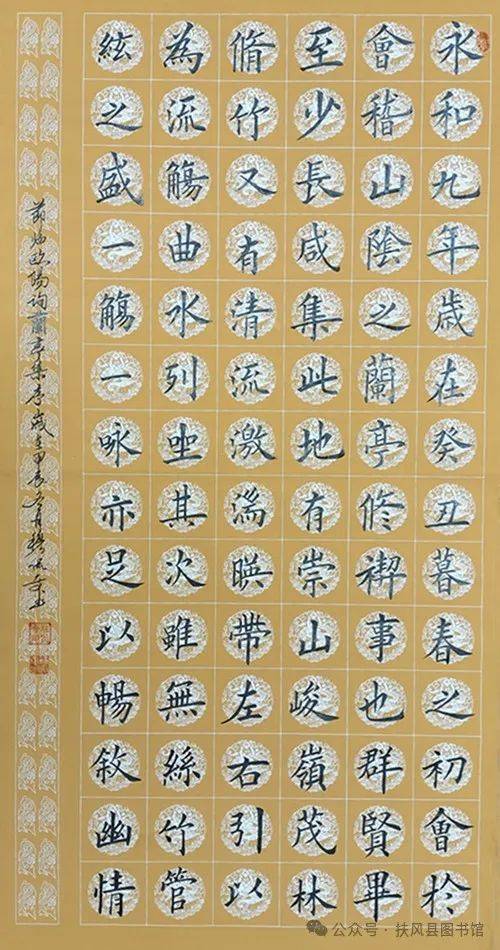 永和九年歲在癸丑暮春之初會於
會稽山陰之蘭亭修禊事也群賢畢
至少長咸集此地有崇山峻嶺茂林
脩竹又有清流激湍暎帶左右引以
為流觴曲水列坐其次雖無絲竹管
絃之盛一觴一咏亦足以暢敘幽情
節临欧陽询蘭亭集序歲在甲辰冬月
公众号·扶风县图书馆